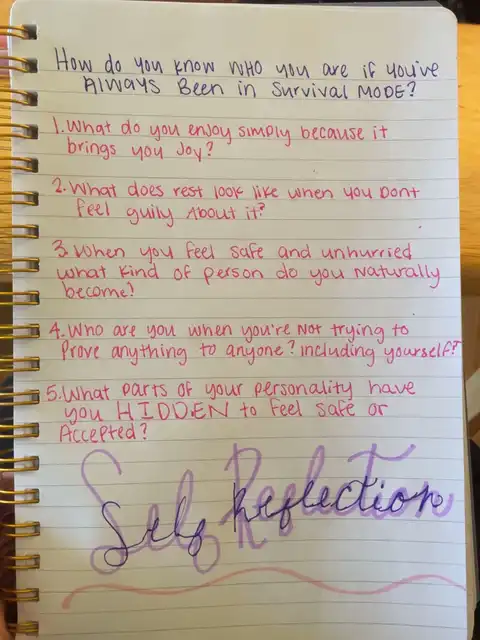 How do you know who you are if you've
ALWAYS Been in Survival MODE?
1. What do you enjoy simply because it
brings you Joy?
2. What does rest look like when you Dont
feel guily About it?
3. When you feel safe and unhurried
what kind of person do you Naturally
become?
4. Who are you when you're Not trying to
Prove anything to anyone? including yourself?
5. What parts of your personality have
you HIDDEN to feel safe or
Accepted?
Self Reflection